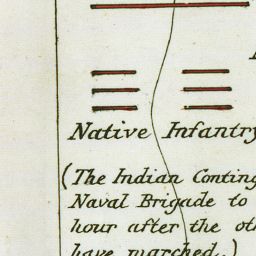 Native Infantry
(The Indian Conting
Naval Brigade to
hour after the oth
have marched.)